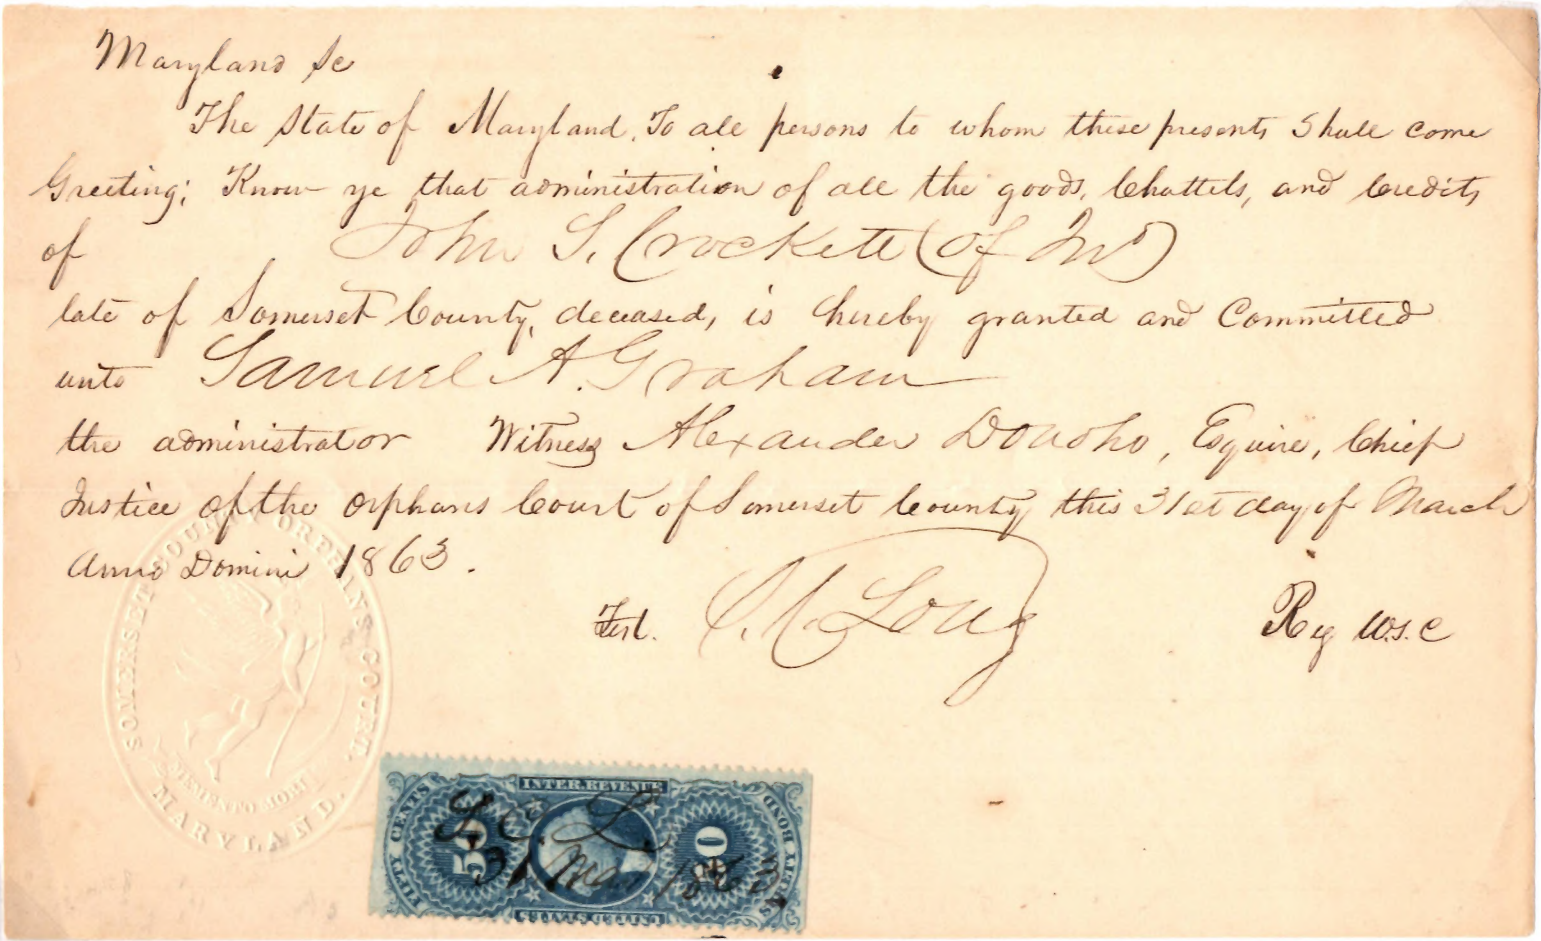 Maryland Sc
The State of Maryland. To all persons to whom these presents Shall come
Greeting; Know ye that administration of all the goods, Chattels, and Credits
of John S. Crockett (of Jno)
late of Somerset County, deceased, is hereby granted and Committed
unto Samuel A. Graham
the administrator Witness Alexander Donoho, Esquire, Chief
Justice of the Orphans Court of Somerset County this 31st day of March
Anno Domini 1863.
Test. Long Reg W.S.C
SOMERSET COUNTY ORPHANS COURT.
MEMENTO MORI
MARYLAND.
INTER. REVENUE
FIFTY CENTS
50
50
SURETY BOND
UNITED STATES
L.
31 Mar 1863